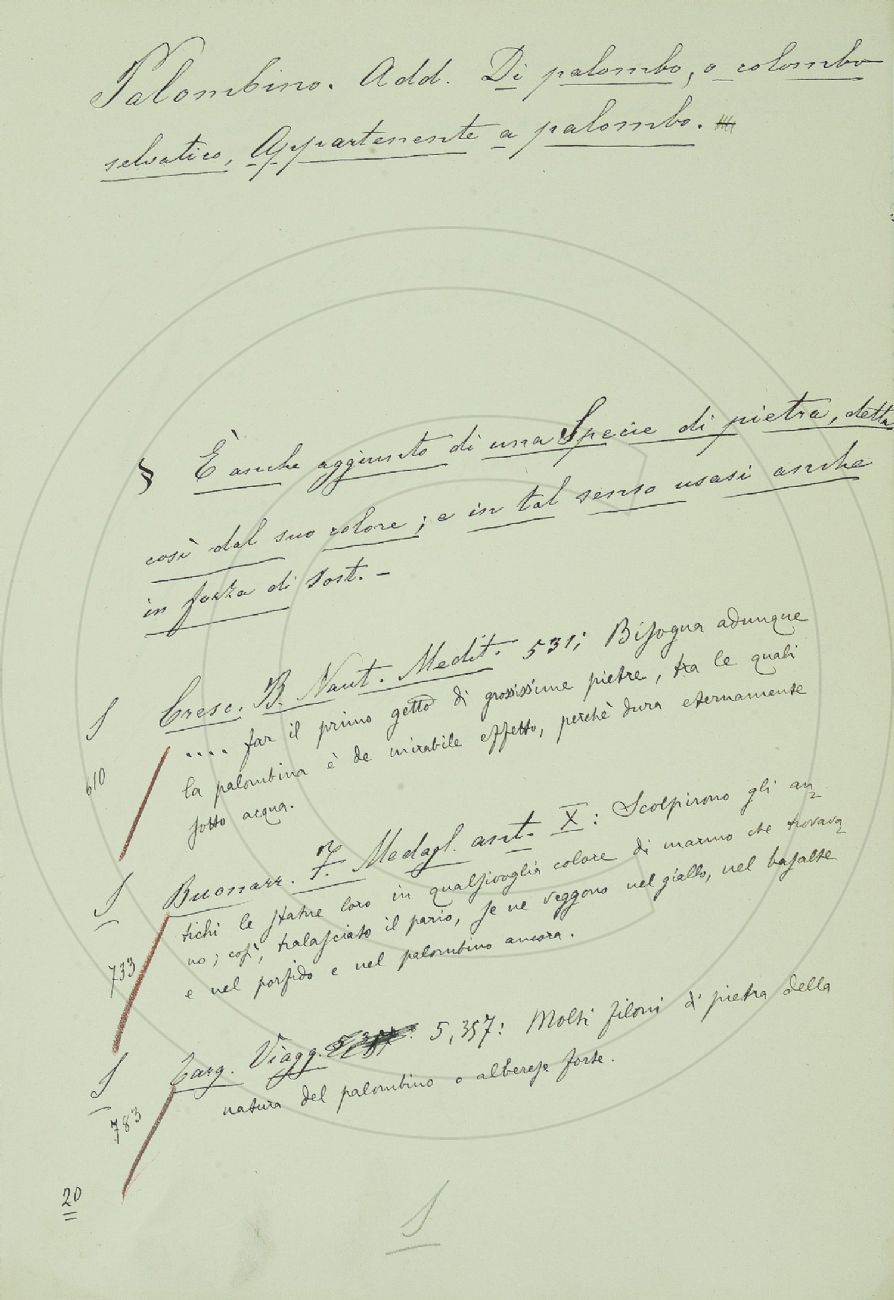 Palombino. Add. Di palombo, o colombo
selvatico, Appartenente a palombo.
§ È anche aggiunto di una Specie di pietra, detta
così dal suo colore; e in tal senso usasi anche
in forza di Sost. –
S Cresc. B. Naut. Medit. 531: Biſogna adunque
610 .... far il primo getto di groſsiſsime pietre, tra le quali
la palombina è de mirabile effetto, perchè dura eternamente
ſotto acqua.
S Buonarr. F. Medagl. ant. X: Scolpirono gli an-
tichi le ſtatue loro in qualſivoglia colore di marmo che trovava-
733 no; coſì, tralaſciato il pario, ſe ne veggono nel giallo, nel baſalte
e nel porfido e nel palombino ancora.
S Targ. Viagg. 5, 357: Molti filoni di pietra della
783 natura del palombino o albereſe forte.
20
S